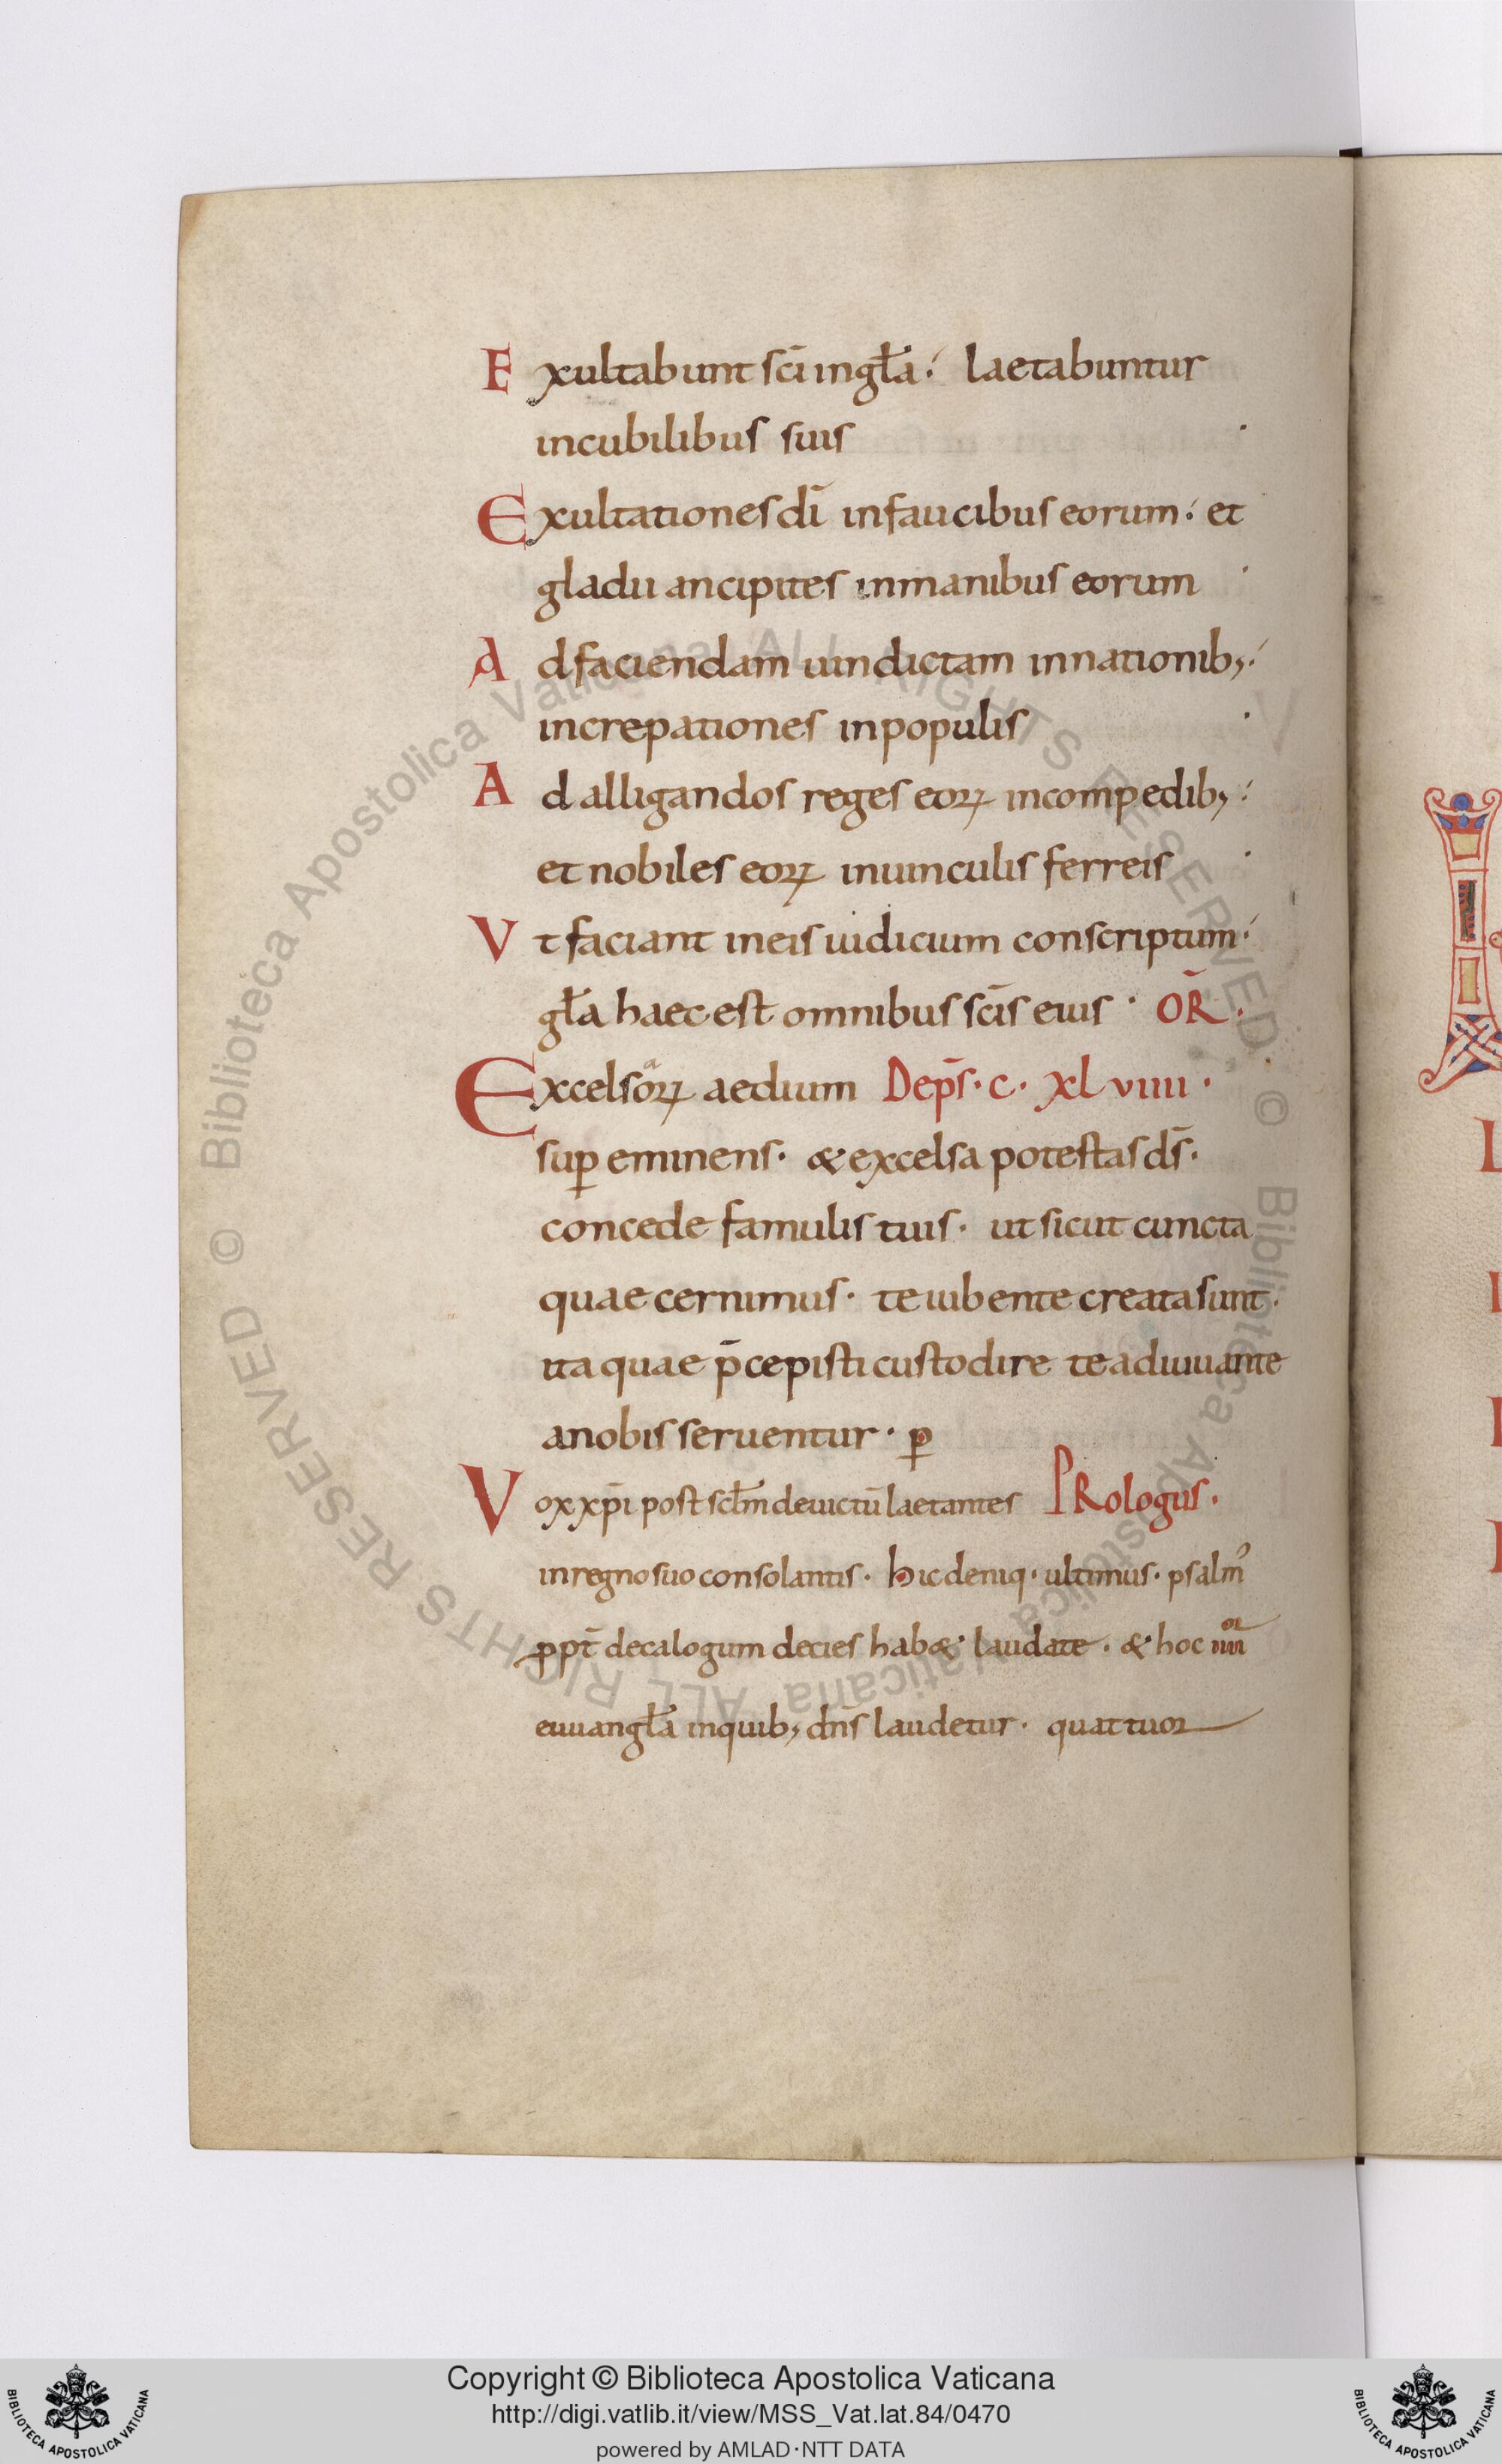 Exultabunt sc̄i in gl̄a : laetabuntur
in cubilibus suis ·
Exultationes dī in faucibus eorum : et
gladii ancipites in manibus eorum ·
Ad faciendam uindictam in nationib; :
increpationes in populis ·
Ad alligandos reges eoꝝ in compedib; :
et nobiles eoꝝ in uinculis ferreis ·
Vt faciant in eis iudicium conscriptum :
gl̄a haec est omnibus sc̄is eius · OR̄ ·
Excelsoꝝ aedium De ps̄ · c · xlviiii ·
suꝑ eminens · & excelsa potestas ds̄ ·
concede famulis tuis · ut sicut cuncta
quae cernimus · te iubente creata sunt ·
ita quae p̄cepisti custodire te adiuuante
a nobis seruentur · ꝑ
Vox xp̄i post sc̄l̄m deuictū laetantes PRologus ·
in regno suo consolantis · hic deniq · ultimus · psalm᾿
ꝓpt̄ decalogum decies hab& · laudate · & hoc iiii or
euuangl̄a in quib; dn̄s laudetur · quattuor
Copyright © Biblioteca Apostolica Vaticana
http://digi.vatlib.it/view/MSS_Vat.lat.84/0470
powered by AMLAD·NTT DATA
BIBLIOTECA APOSTOLICA VATICANA
BIBLIOTECA APOSTOLICA VATICANA
© Biblioteca Apostolica Vaticana ALL RIGHTS RESERVED
© Biblioteca Apostolica Vaticana ALL RIGHTS RESERVED